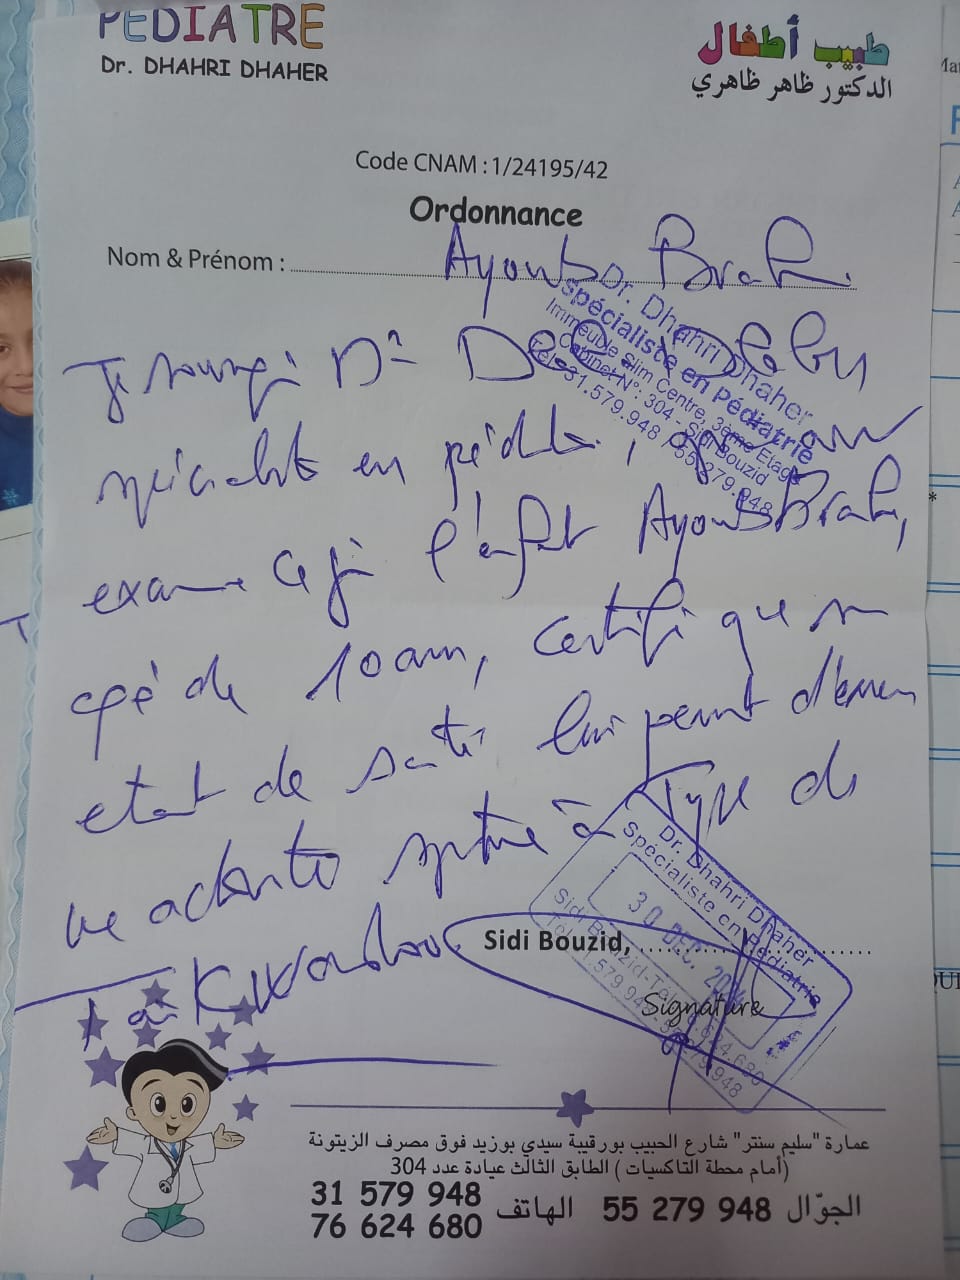 PEDIATRE
Dr. DHAHRI DHAHER
طبيب أطفال
الدكتور ظاهر ظاهري
Code CNAM : 1/24195/42
Ordonnance
Nom & Prénom : Ayoub Brahi
Dr. Dhahri Dhaher
spécialiste en pédiatrie
Immeuble Slim Centre, 3ème Etage
Cabinet N°: 304 - Sidi Bouzid
Tél: 31.579.948 / 55.279.948
Je soussigné Dr
spécialiste en pédiatrie,
examiné ce jour l'enfant Ayoub Brahi,
âgé de 10 ans, certifie que son
etat de santé lui permet d'exercer
une activité sportive à Type de
Taikwondo
Dr. Dhahri Dhaher
Spécialiste en Pédiatrie
30 DEC.
Sidi Bouzid,
Signature
عمارة "سليم سنتر" شارع الحبيب بورقيبة سيدي بوزيد فوق مصرف الزيتونة
(أمام محطة التاكسيات) الطابق الثالث عيادة عدد 304
31 579 948
76 624 680
الهاتف
55 279 948 الجوّال